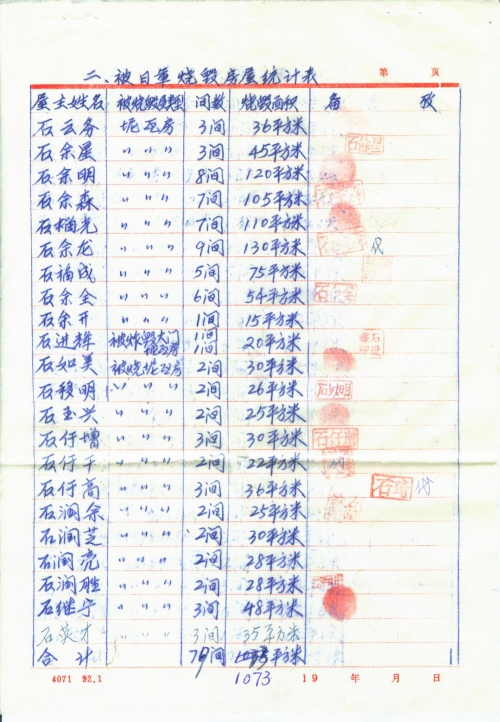 二、被日軍烧毁房屋统计表 第 頁
屋主姓名 被烧毁房类别 间数 烧毁面积 备 攷
石云务 坭瓦房 3间 36平方米
石余星 〃 〃 〃 3间 45平方米
石余明 〃 〃 〃 8间 120平方米
石余森 〃 〃 〃 7间 105平方米
石楠光 〃 〃 〃 7间 110平方米
石余龙 〃 〃 〃 9间 130平方米
石福成 〃 〃 〃 5间 75平方米
石余全 〃 〃 〃 6间 54平方米
石余开 〃 〃 〃 1间 15平方米
石进辉 被炸毁大门 1间 1间 20平方米
石如美 被烧坭瓦房 2间 30平方米
石稳明 〃 〃 〃 2间 26平方米
石玉兴 〃 〃 〃 2间 25平方米
石仔增 〃 〃 〃 3间 30平方米
石仔干 〃 〃 〃 2间 22平方米
石仔高 〃 〃 〃 3间 36平方米
石润余 〃 〃 〃 2间 25平方米
石润芝 〃 〃 〃 2间 30平方米
石润亮 〃 〃 〃 2间 28平方米
石润胜 〃 〃 〃 2间 28平方米
石继宁 〃 〃 〃 3间 48平方米
石英才 〃 〃 〃 3间 35平方米
合计 79间 平方米
1073
4071 92.1 19 年 月 日